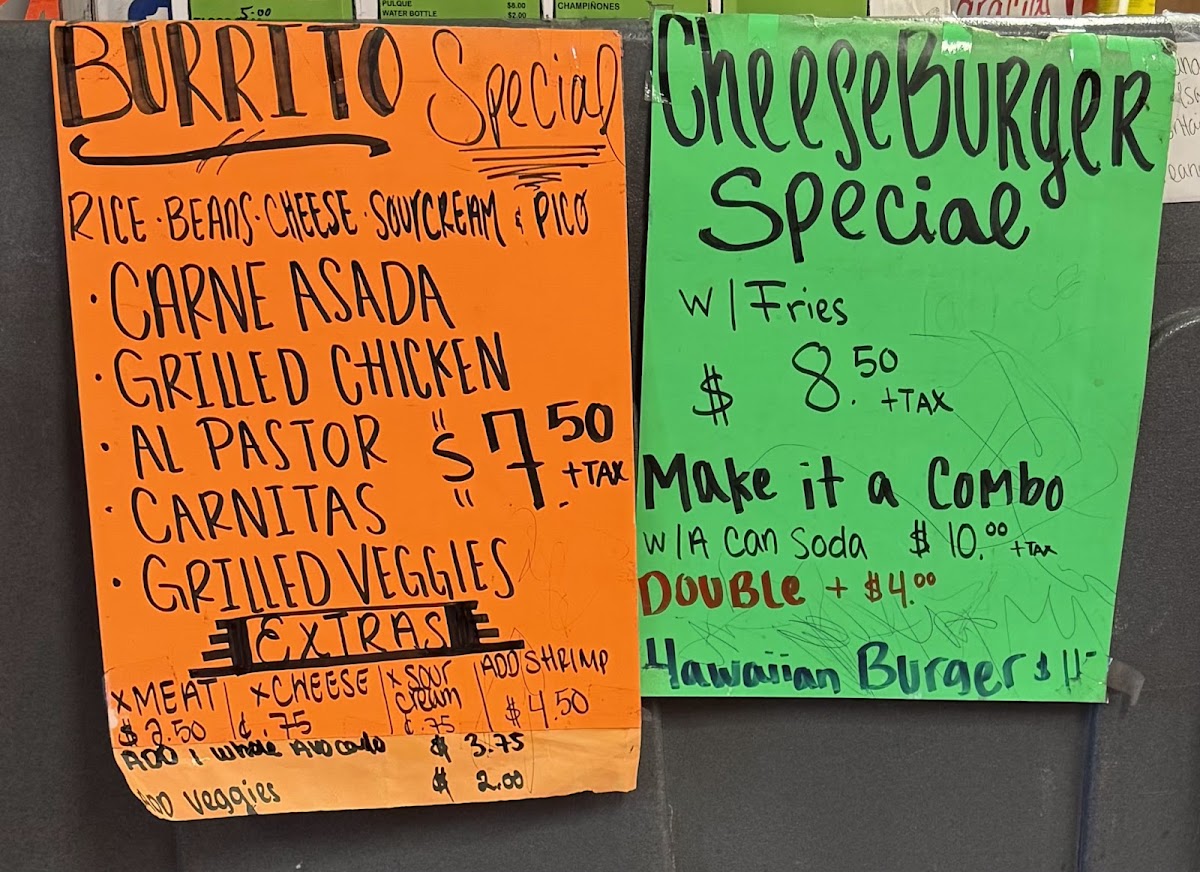 5.00
PULQUE $8.00
WATER BOTTLE $2.00
CHAMPIÑONES
Gracias!
BURRITO Special
RICE · BEANS · CHEESE · SOURCREAM & PICO
· CARNE ASADA
· GRILLED CHICKEN
· AL PASTOR "$7.50 + TAX
· CARNITAS "
· GRILLED VEGGIES
EXTRAS
X MEAT $2.50 | X CHEESE ¢.75 | X SOUR CREAM ¢.75 | ADD SHRIMP $4.50
ADD 1 whole AVOCADO $ 3.75
ADD veggies $ 2.00
CheeseBurger
Special
W/Fries
$ 8.50 +TAX
Make it a Combo
W/A Can Soda $10.00 +TAX
DOUBLE + $4.00
Hawaiian Burger $11-